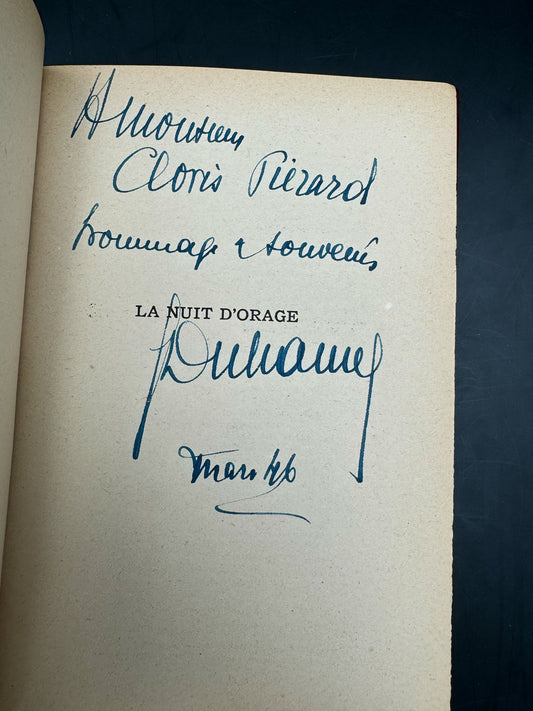 A Monsieur
Clovis Piérard
hommage & souvenir
LA NUIT D'ORAGE
GDuhamel
Mars 46